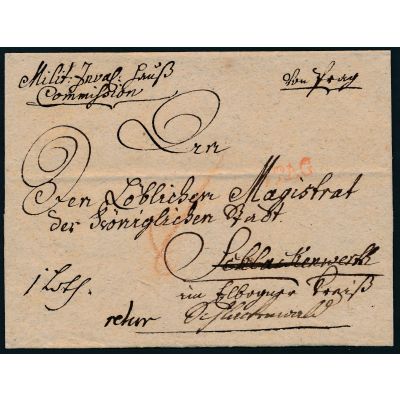 Milit: Inval: Hauß
Commission
Von Prag
Den Löblichen Magistrat
der Königlichen Stadt
Schlackenwerth
im Elbogner Kreiß
1 Loth.
retur Schlackenwald